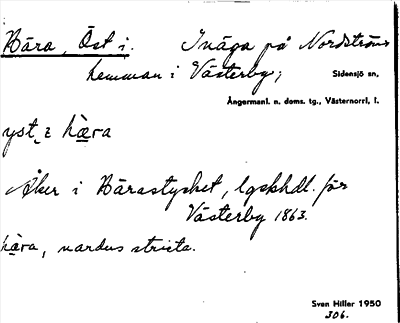 Bāra, Öst i. Inäga på Nordströms
hemman i Västerby;
Sidensjö sn,
Ångermanl. n. doms. tg., Västernorrl. l.
yst i hæra
Åker i Bärastycket, lgskhdl. för
Västerby 1863.
hæra, nardus stricta.
Sven Hiller 1950
306.